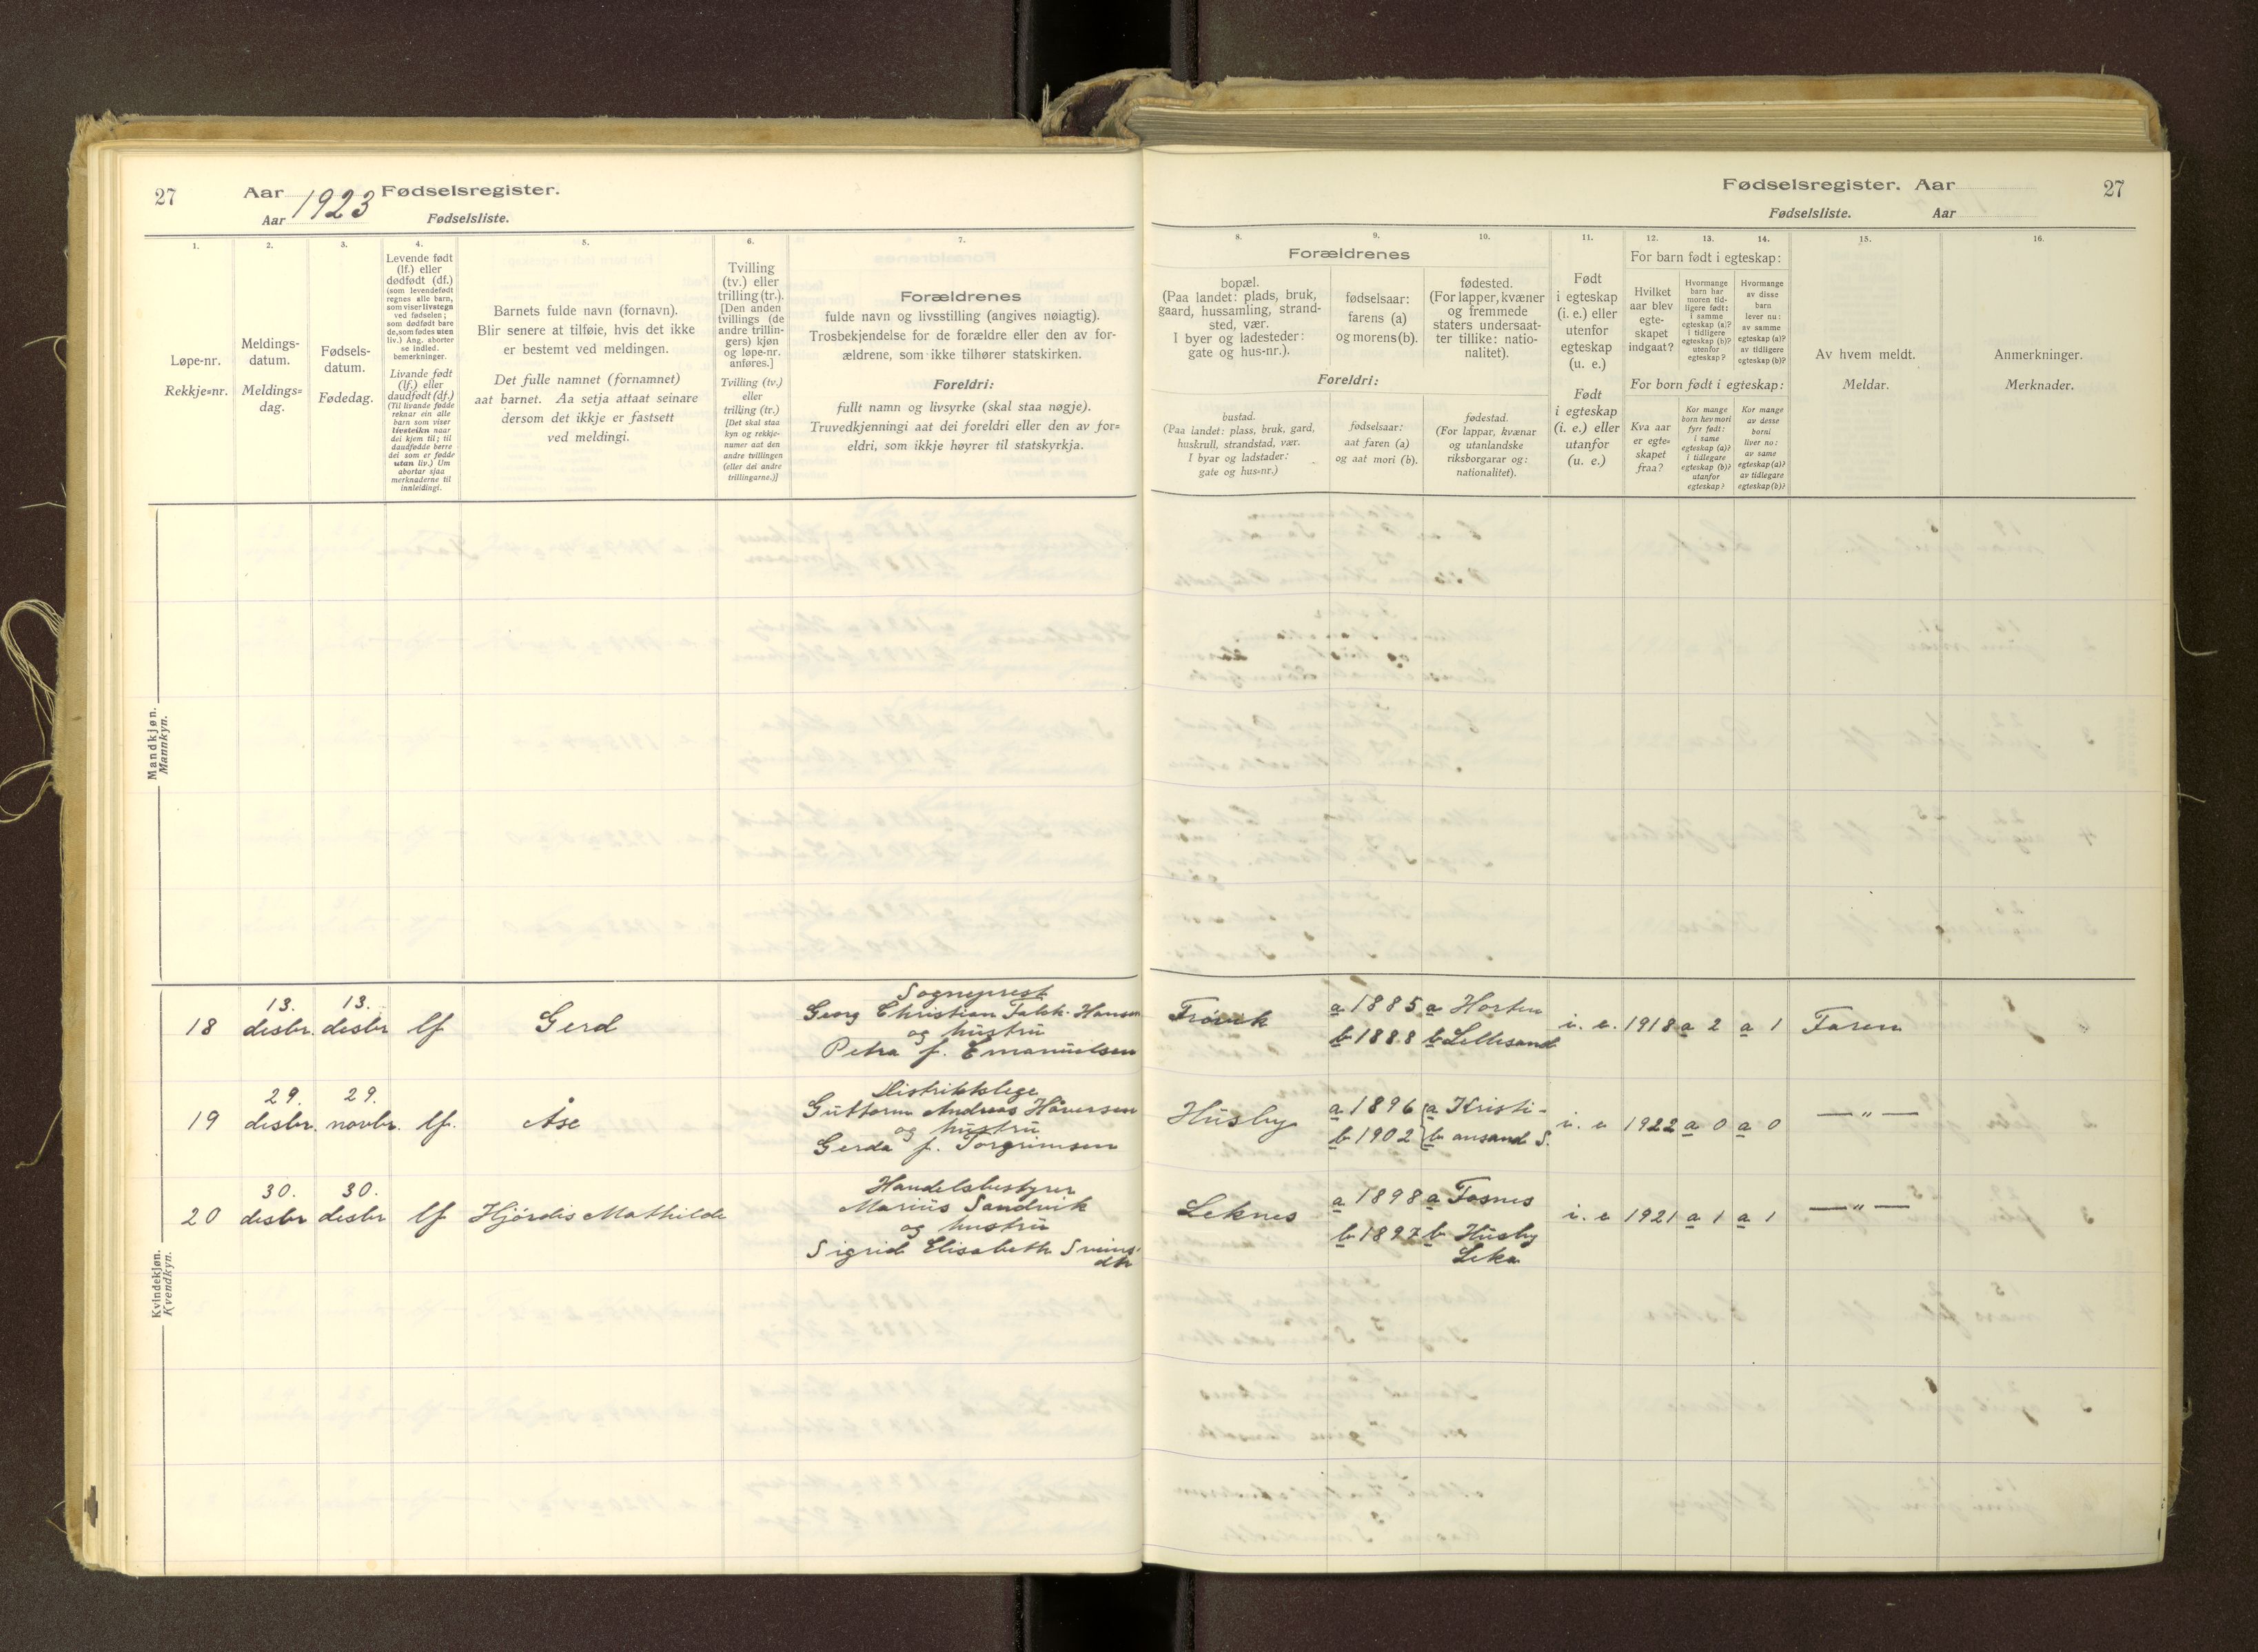 27
Aar 1923 Fødselsregister.
Aar Fødselsliste.
1.
2.
3.
4.
5.
6.
7.
Løpe-nr.
Rekkje=nr.
Meldings-
datum.
Meldings=
dag.
Fødsels-
datum.
Fødedag.
Levende født
(lf.) eller
dødfødt (df.)
(som levendefødt
regnes alle barn,
som viser livstegn
ved fødselen;
som dødfødt bare
de, som fødes uten
liv.) Ang. aborter
se indled.
bemerkninger.
Livande født
(lf.) eller
daudfødt (df.)
(Til livande fødde
reknar ein alle
barn som viser
livsteikn naar
dei kjem til; til
daudfødde berre
dei som er fødde
utan liv.) Um
abortar sjaa
merknaderne til
innleidingi.
Barnets fulde navn (fornavn).
Blir senere at tilføie, hvis det ikke
er bestemt ved meldingen.
Det fulle namnet (fornamnet)
aat barnet. Aa setja attaat seinare
dersom det ikkje er fastsett
ved meldingi.
Tvilling
(tv.) eller
trilling (tr.).
[Den anden
tvillings (de
andre trillin-
gers) kjøn
og løpe-nr.
anføres.]
Tvilling (tv.)
eller
trilling (tr.)
[Det skal staa
kyn og rekkje-
numer aat den
andre tvillingen
(eller dei andre
trillingarne.)]
Forældrenes
fulde navn og livsstilling (angives nøiagtig).
Trosbekjendelse for de forældre eller den av for-
ældrene, som ikke tilhører statskirken.
Foreldri:
fullt namn og livsyrke (skal staa nøgje).
Truvedkjenningi aat dei foreldri eller den av for=
eldri, som ikkje høyrer til statskyrkja.
Mandkjøn.
Mannkyn.
Kvindekjøn.
Kvendkyn.
Fødselsregister. Aar
27
Fødselsliste. Aar
8.
9.
10.
11.
12.
13.
14.
15.
16.
Forældrenes
bopæl.
(Paa landet: plads, bruk,
gaard, hussamling, strand-
sted, vær.
I byer og ladesteder:
gate og hus-nr.).
fødselsaar:
farens (a)
og morens (b).
fødested.
(For lapper, kvæner
og fremmede
staters undersaat-
ter tillike: natio-
nalitet).
Foreldri:
bustad.
(Paa landet: plass, bruk, gard,
huskrull, strandstad, vær.
I byar og ladstader:
gate og hus=nr.)
fødselsaar:
aat faren (a)
og aat mori (b).
fødestad.
(For lappar, kvænar
og utanlandske
riksborgarar og:
nationalitet).
Født
i egteskap
(i. e.) eller
utenfor
egteskap
(u. e.)
Født
i egteskap
(i. e.) eller
utanfor
(u. e.)
For barn født i egteskap:
Hvilket
aar blev
egte-
skapet
indgaat?
Hvormange
barn har
moren tid-
ligere født:
i samme
egteskap (a)?
i tidligere
egteskap (b)?
utenfor
egteskap?
Hvormange
av disse
barn
lever nu:
av samme
egteskap (a)?
av tidligere
egteskap (b)?
For born født i egteskap:
Kva aar
er egte=
skapet
fraa?
Kor mange
born hev mori
fyrr født:
i same
egteskap (a)?
i tidlegare
egteskap (b)?
utanfor
egteskap?
Kor mange
av desse
borni
liver no:
av same
egteskap (a)?
av tidlegare
egteskap (b)?
Av hvem meldt.
Meldar.
Anmerkninger.
Merknader.
18 13. desbr. 13. desbr lf Gerd
Sogneprest
Georg Christian Falck-Hansen
og hustru
Petra f. Emanuelsen
Frövik a 1885 a Horten
b 1888 b Lillesand
i. e. 1918 a 2 a 1 Faren
19 29. desbr. 29. novbr. lf. Åse
Distriktslege
Guttorm Andreas Håversen
og hustru
Gerda f. Torgrimsen
Husby a 1896 a Kristi-
b 1902 b ansand S.
i. e 1922 a 0 a 0 — " —
20 30. desbr 30. desbr lf Hjördis Mathilde
Handelsbestyrer
Marius Sandvik
og hustru
Sigrid Elisabeth Sveins-
dtr
Leknes a 1898 a Fosnes
b 1897 b Husby
Leka
i. e 1921 a 1 a 1 — " —